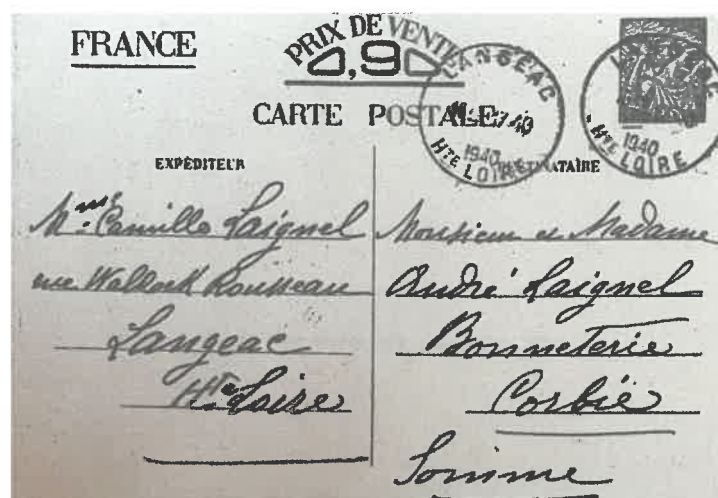 FRANCE
PRIX DE VENTE
0,90
CARTE POSTALE
LANGEAC
1940
HTE LOIRE
1940
HTE LOIRE
EXPÉDITEUR
Mme Camille Laignel
rue Walleck Rousseau
Langeac
Hte Loire
Monsieur et Madame
André Laignel
Bonneterie
Corbie
Somme